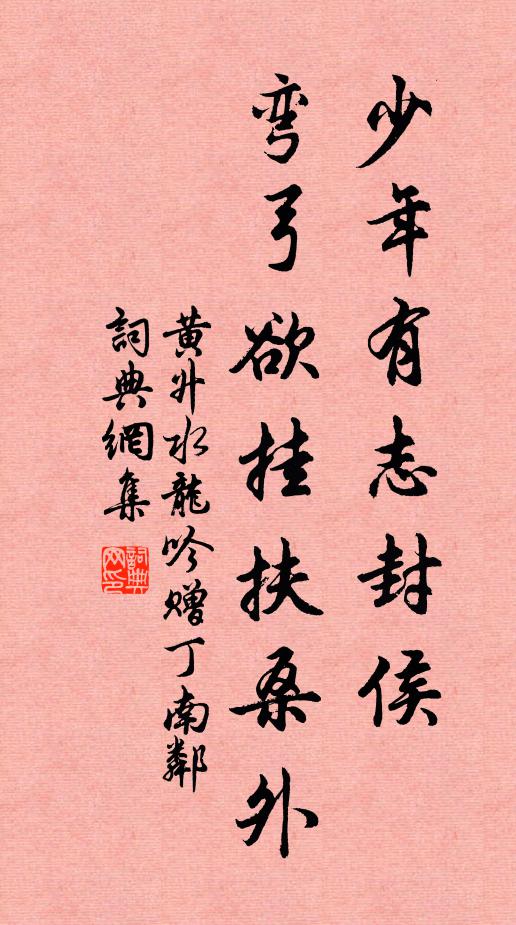 少年有志封侯
弯弓欲挂扶桑外
黄升水龍吟赠丁南鄰
詞典網集
詞典网印